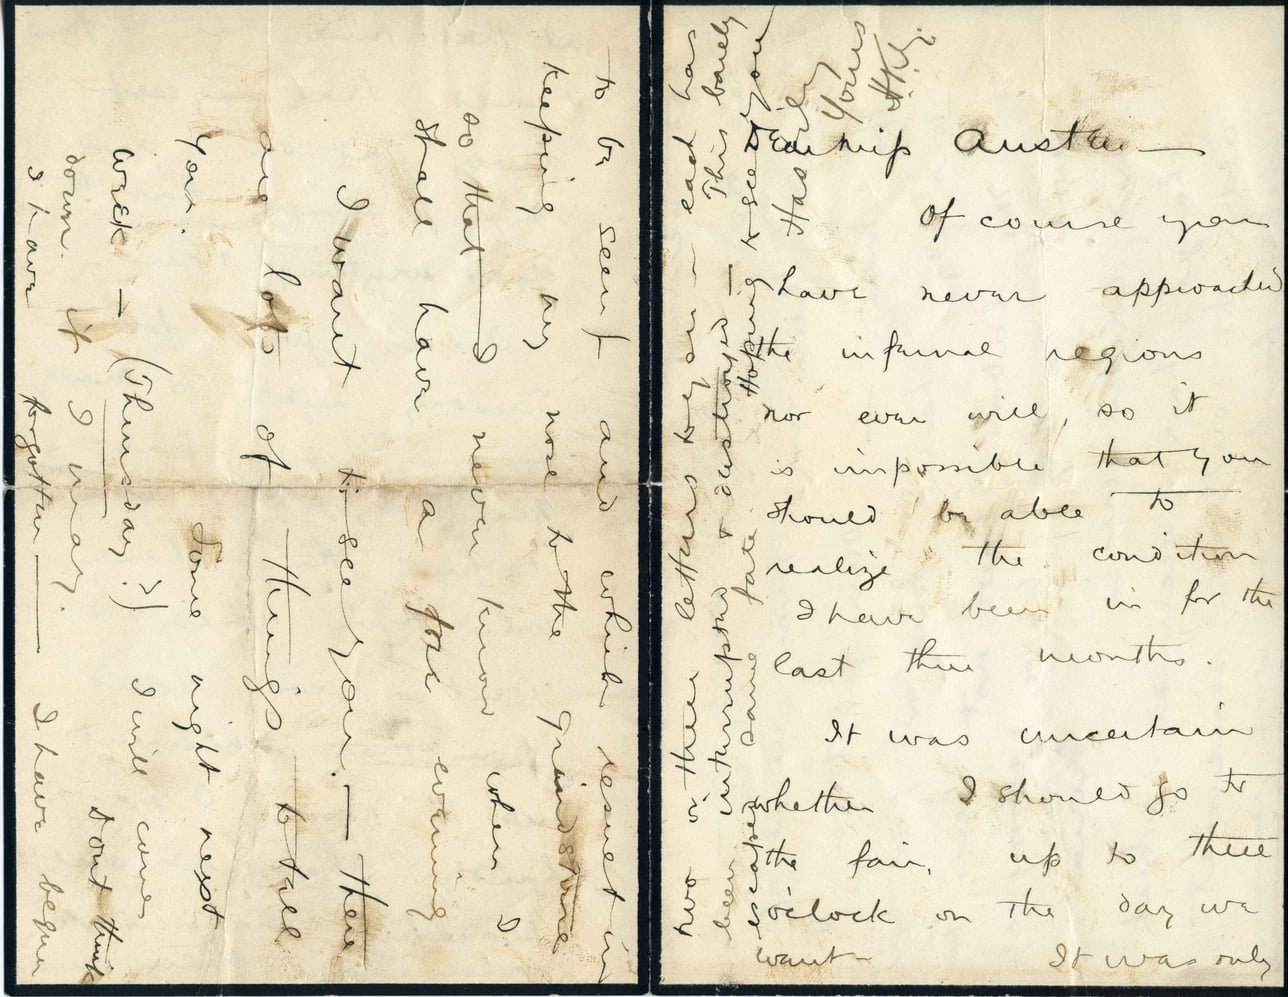 Dear Miss Austen —
Of course you
have never approached
the infernal regions
nor ever will, so it
is impossible that you
should be able to
realize the condition
I have been in for the
last three months.
It was uncertain
whether I should go to
the fair, up to three
o'clock on the day we
went — It was only
to be seen and which result in
keeping my nose to the grindstone
so that I never know when I
shall have a free evening
I want to see you. — there
are lots of things to tell
you. Some night next
week — (Thursday?) I will come
down if I may. Dont think
I have forgotten — I have begun
two or three letters to you — each has
been interrupted & destroyed — This barely
escapes same fate. Hoping to see you
Hastily
Yours